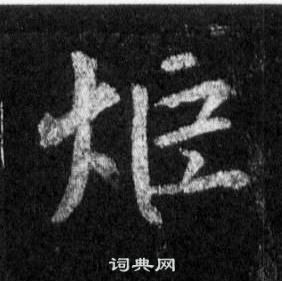 炬
词典网